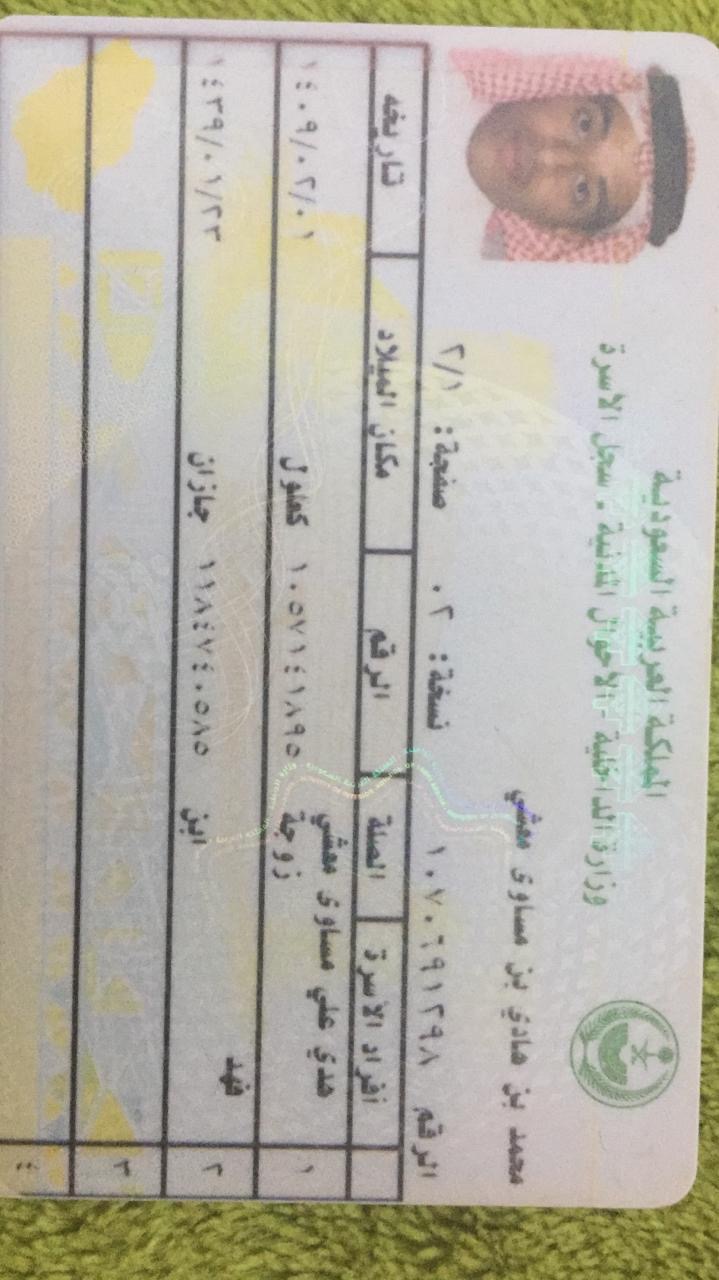 المملكة العربية السعودية
وزارة الداخلية - الاحوال المدنية - سجل الاسرة
محمد بن هادي بن مساوى معشي
الرقم ١٠٧٠٦٩١٢٩٨ نسخة: ٠٢ صفحة: ٢/١
أفراد الأسرة الصلة الرقم مكان الميلاد تاريخه
١ هدي علي مساوى معشي زوجة ١٠٥٧١٤١٨٩٥ كعلول ١٤٠٩/٠٢/٠١
٢ فهد ابن ١١٨٤٧٤٠٥٨٥ جازان ١٤٣٩/٠١/٢٣
٣
٤